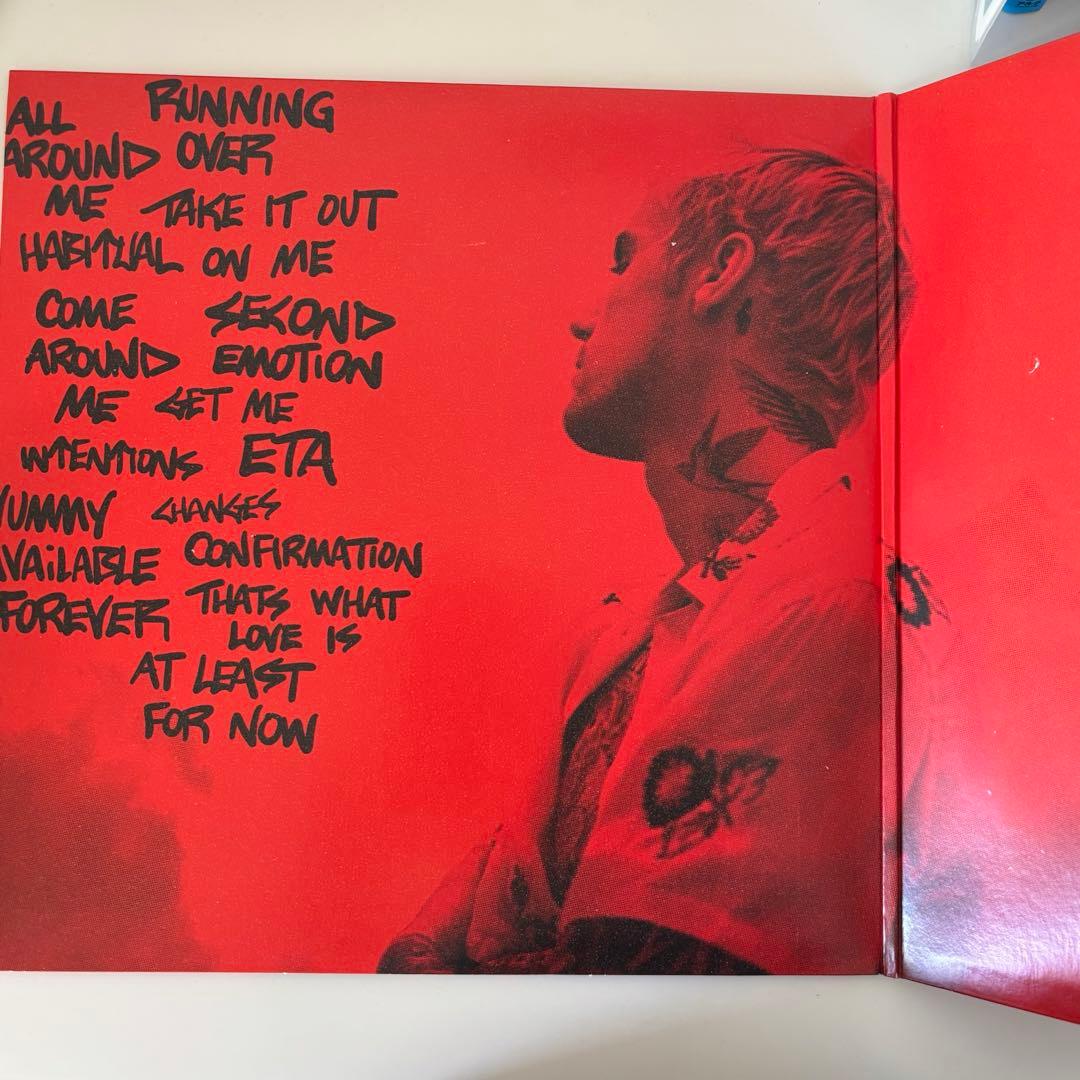 ALL
AROUND
ME
HABITUAL
COME
AROUND
ME
INTENTIONS
YUMMY
AVAiLABLE
FOREVER
RUNNING
OVER
TAKE IT OUT
ON ME
SECOND
EMOTION
GET ME
ETA
CHANGES
CONFIRMATION
THATS WHAT
LOVE IS
AT LEAST
FOR NOW